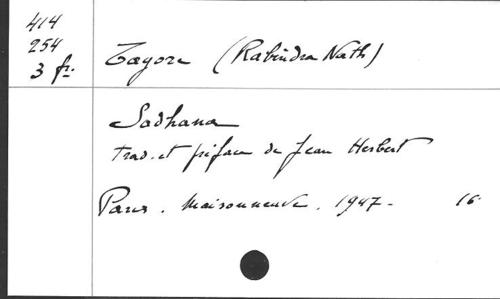 414
254
3 fr.
Tagore (Rabindra Nath)
Sadhana
Trad. et préface de Jean Herbert
Paris. Maisonneuve. 1947- 16